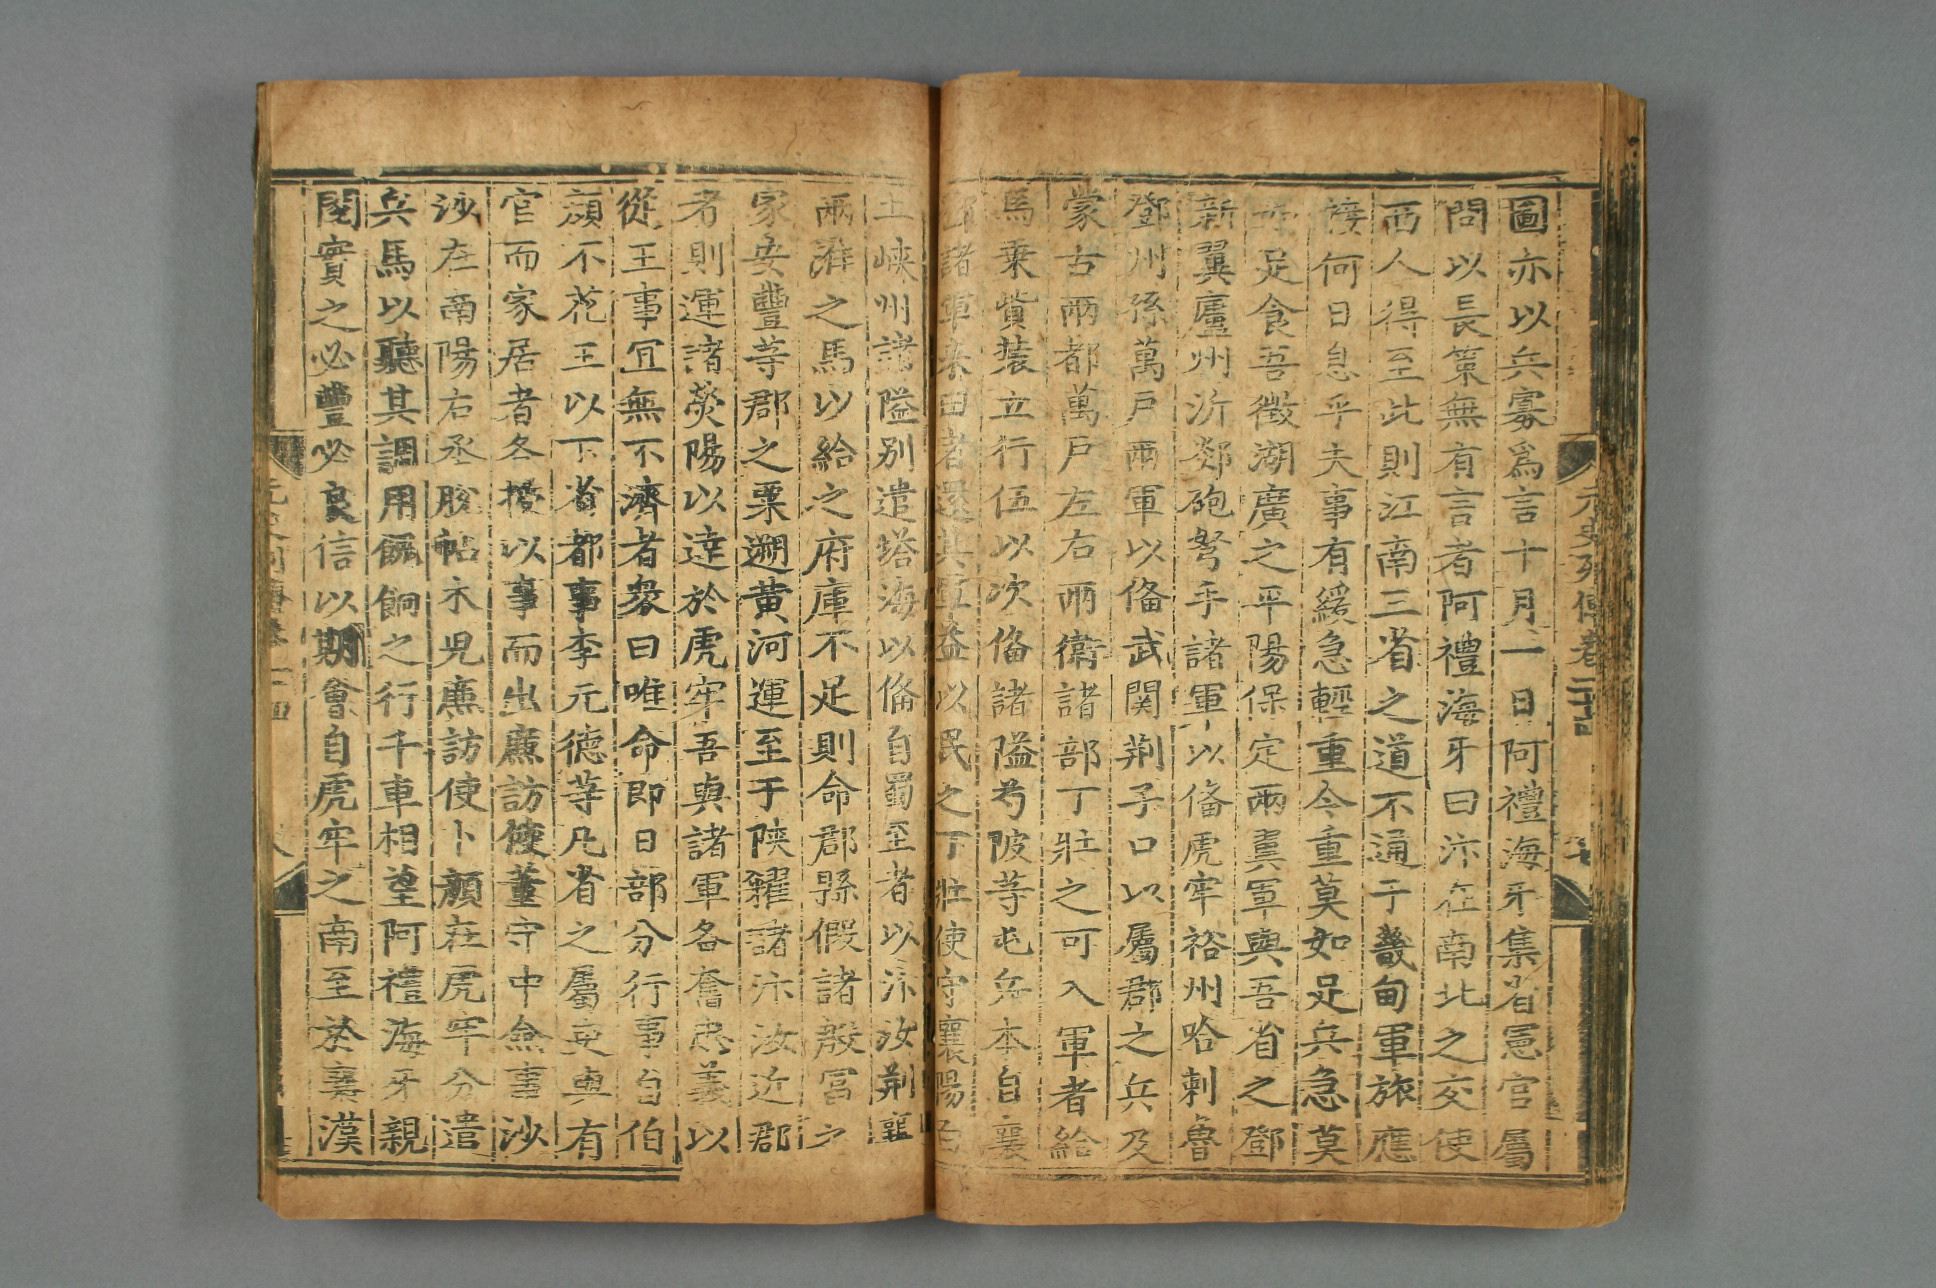 元史列傳卷二十四
圖亦以兵寡爲言十月一日阿禮海牙集省憲官屬
問以長策無有言者阿禮海牙曰汴在南北之交使
西人得至此則江南三省之道不通于畿甸軍旅應
接何日息乎夫事有緩急輕重今重莫如足兵急莫
足食吾徵湖廣之平陽保定兩翼軍與吾省之鄧
新翼廬州沂郯砲弩手諸軍以俻虎牢裕州哈剌魯
鄧州孫萬戶兩軍以俻武関荆子口以屬郡之兵及
蒙古兩都萬戶左右兩衛諸部丁壯之可入軍者給
馬乗貲装立行伍以次俻諸隘芍陂等屯兵本自襄
鄧諸軍来田者還其軍益以民之丁壯使守襄陽白
土峽州諸隘别遣塔海以俻自蜀至者以汴汝荆襄
兩淮之馬以給之府庫不足則命郡縣假諸殷富之
家安豐等郡之粟遡黄河運至于陕糴諸汴汝近郡
者則運諸滎陽以逹於虎牢吾與諸軍各奮忠義以
從王事冝無不濟者衆曰唯命即日部分行事自伯
顔不花王以下省都事李元德等凡省之屬吏與有
官而家居者各授以事而出廉訪使董守中僉事沙
沙在南陽右丞脫帖木児廉訪使卜顔在虎牢分遣
兵馬以聽其調用饋餉之行千車相望阿禮海牙親
閱實之必豐必良信以期會自虎牢之南至於襄漢